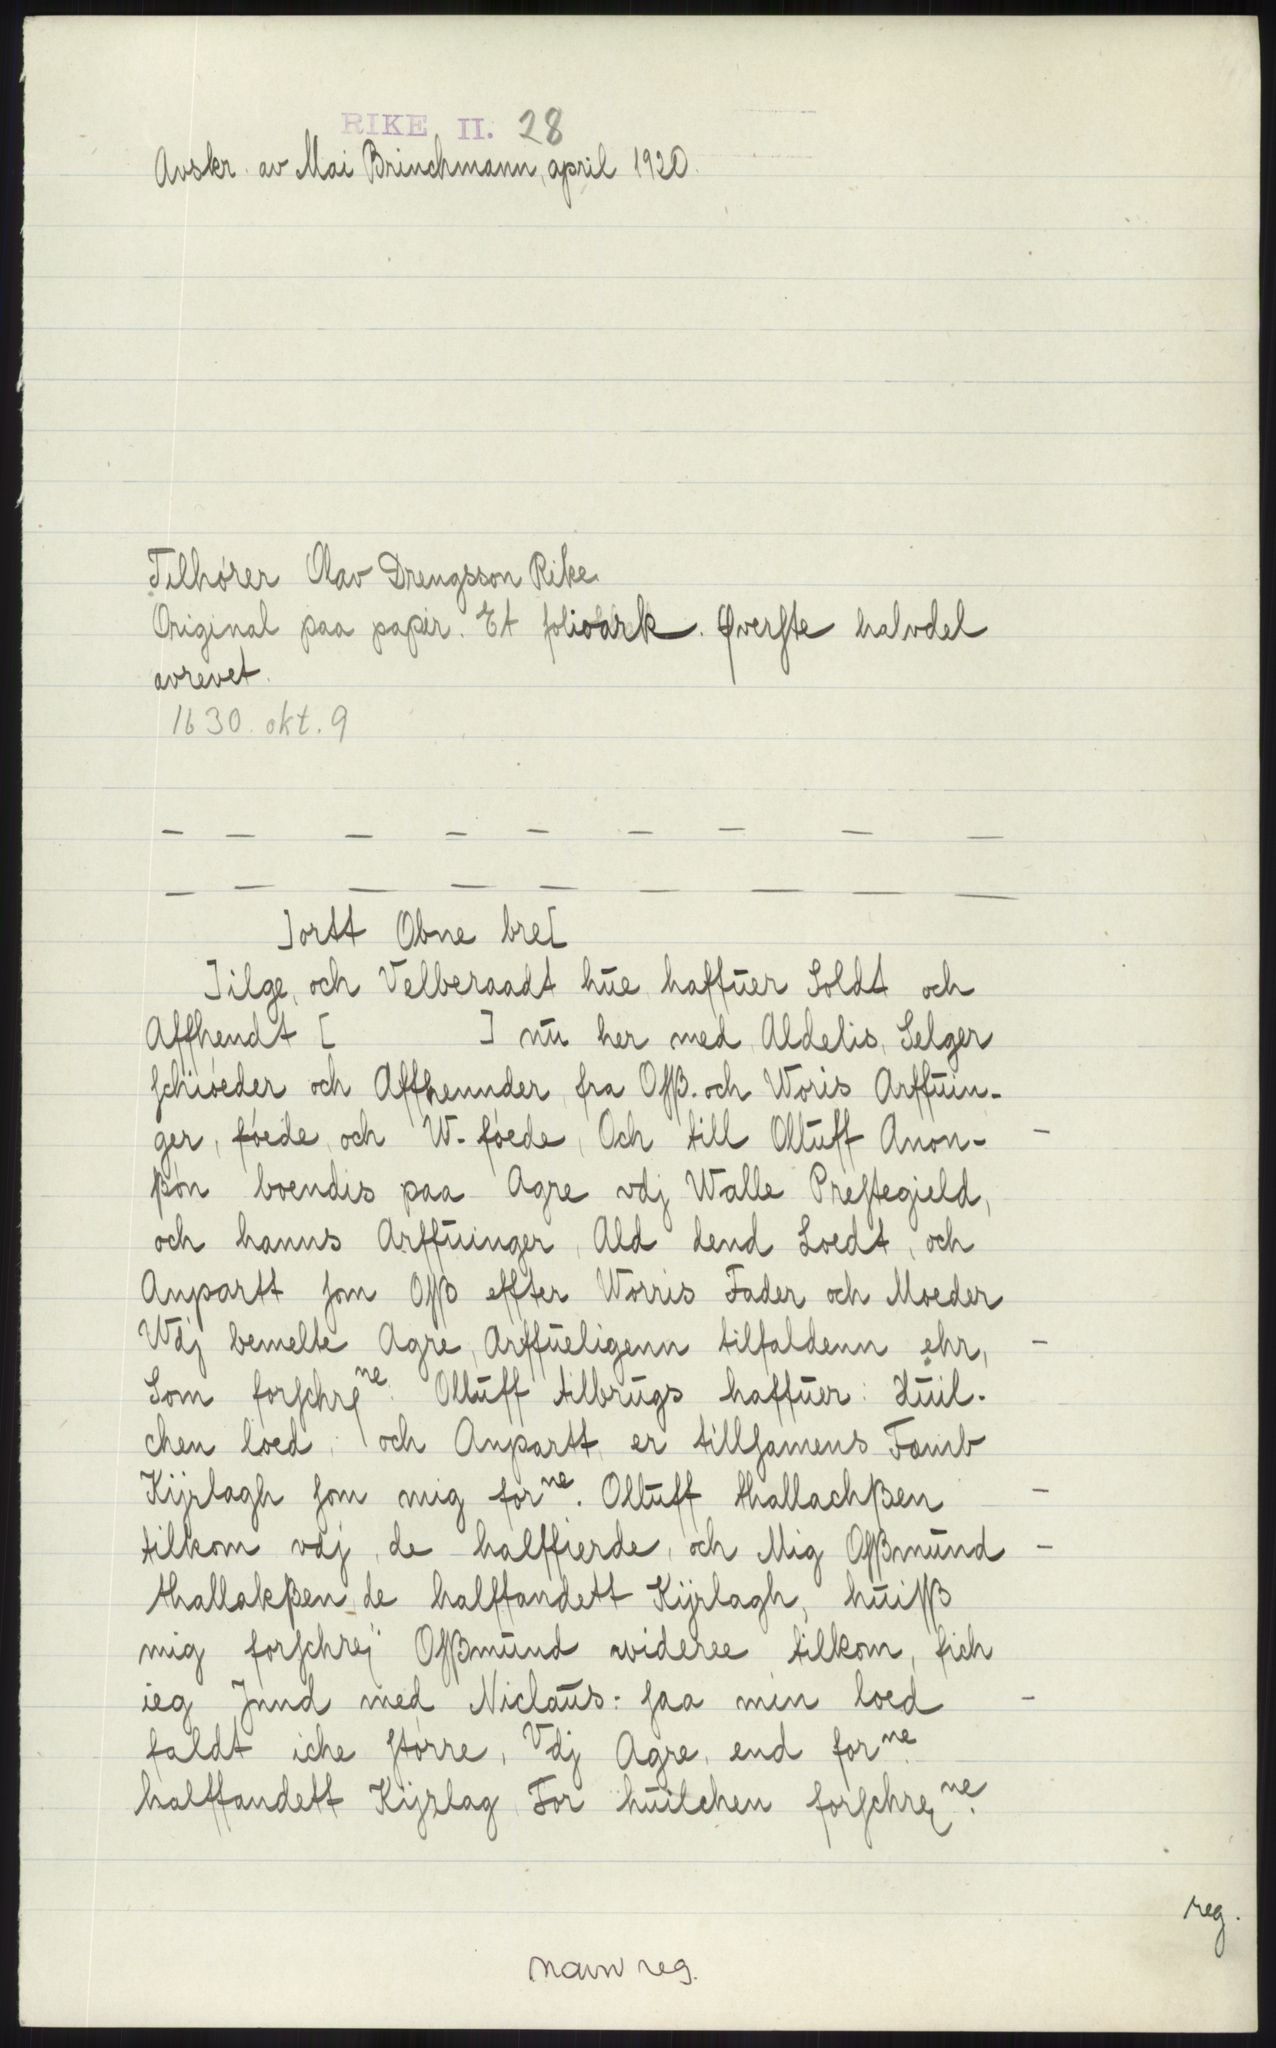 RIKE II. 28
Avskr. av Mai Brinchmann, april 1920.
Tilhører Olav Drengsson Rike.
Original paa papir. Et folioark. Øverste halvdel
avrevet.
1630. okt. 9
— — — — — — — — —
— — — — — — — — —
]ortt Obne bre[
]ilge, och Velberaadt hue haffuer Soldt och
Affhendt [ ] nu her med, Aldelis, Selger
schiøeder och Affhennder fra Oss. och Woris Arffuin-
ger, føede, och W-føede, Och till Olluff Anon- —
ßøn boendis paa Agre vdj Walle Prestegield,
och hanns Arffuinger, Ald dend Loedt, och
Anpartt som Oss effter Worris Fader och Moeder
Vdj bemelte Agre, Arffueligenn tilfaldenn ehr, —
Som forschrꝭne. Olluff tilbrugs haffuer: Huil-
chen loed, och Anpartt er tillsamens Famb
Kijrlagh som mig forne. Olluff thallachßen —
tilkom vdj de halffierde, och Mig Oßmund —
thallakßen de halffandett Kijrlagh, huiss
mig forschrej Oßmund wideree tilkom, fich
ieg Innd med Niclaus: saa min loed —
faldt iche større, Vdj Agre, end forne
halffandett Kijrlag For huilchen forschrꝭne.
reg.
navnreg.